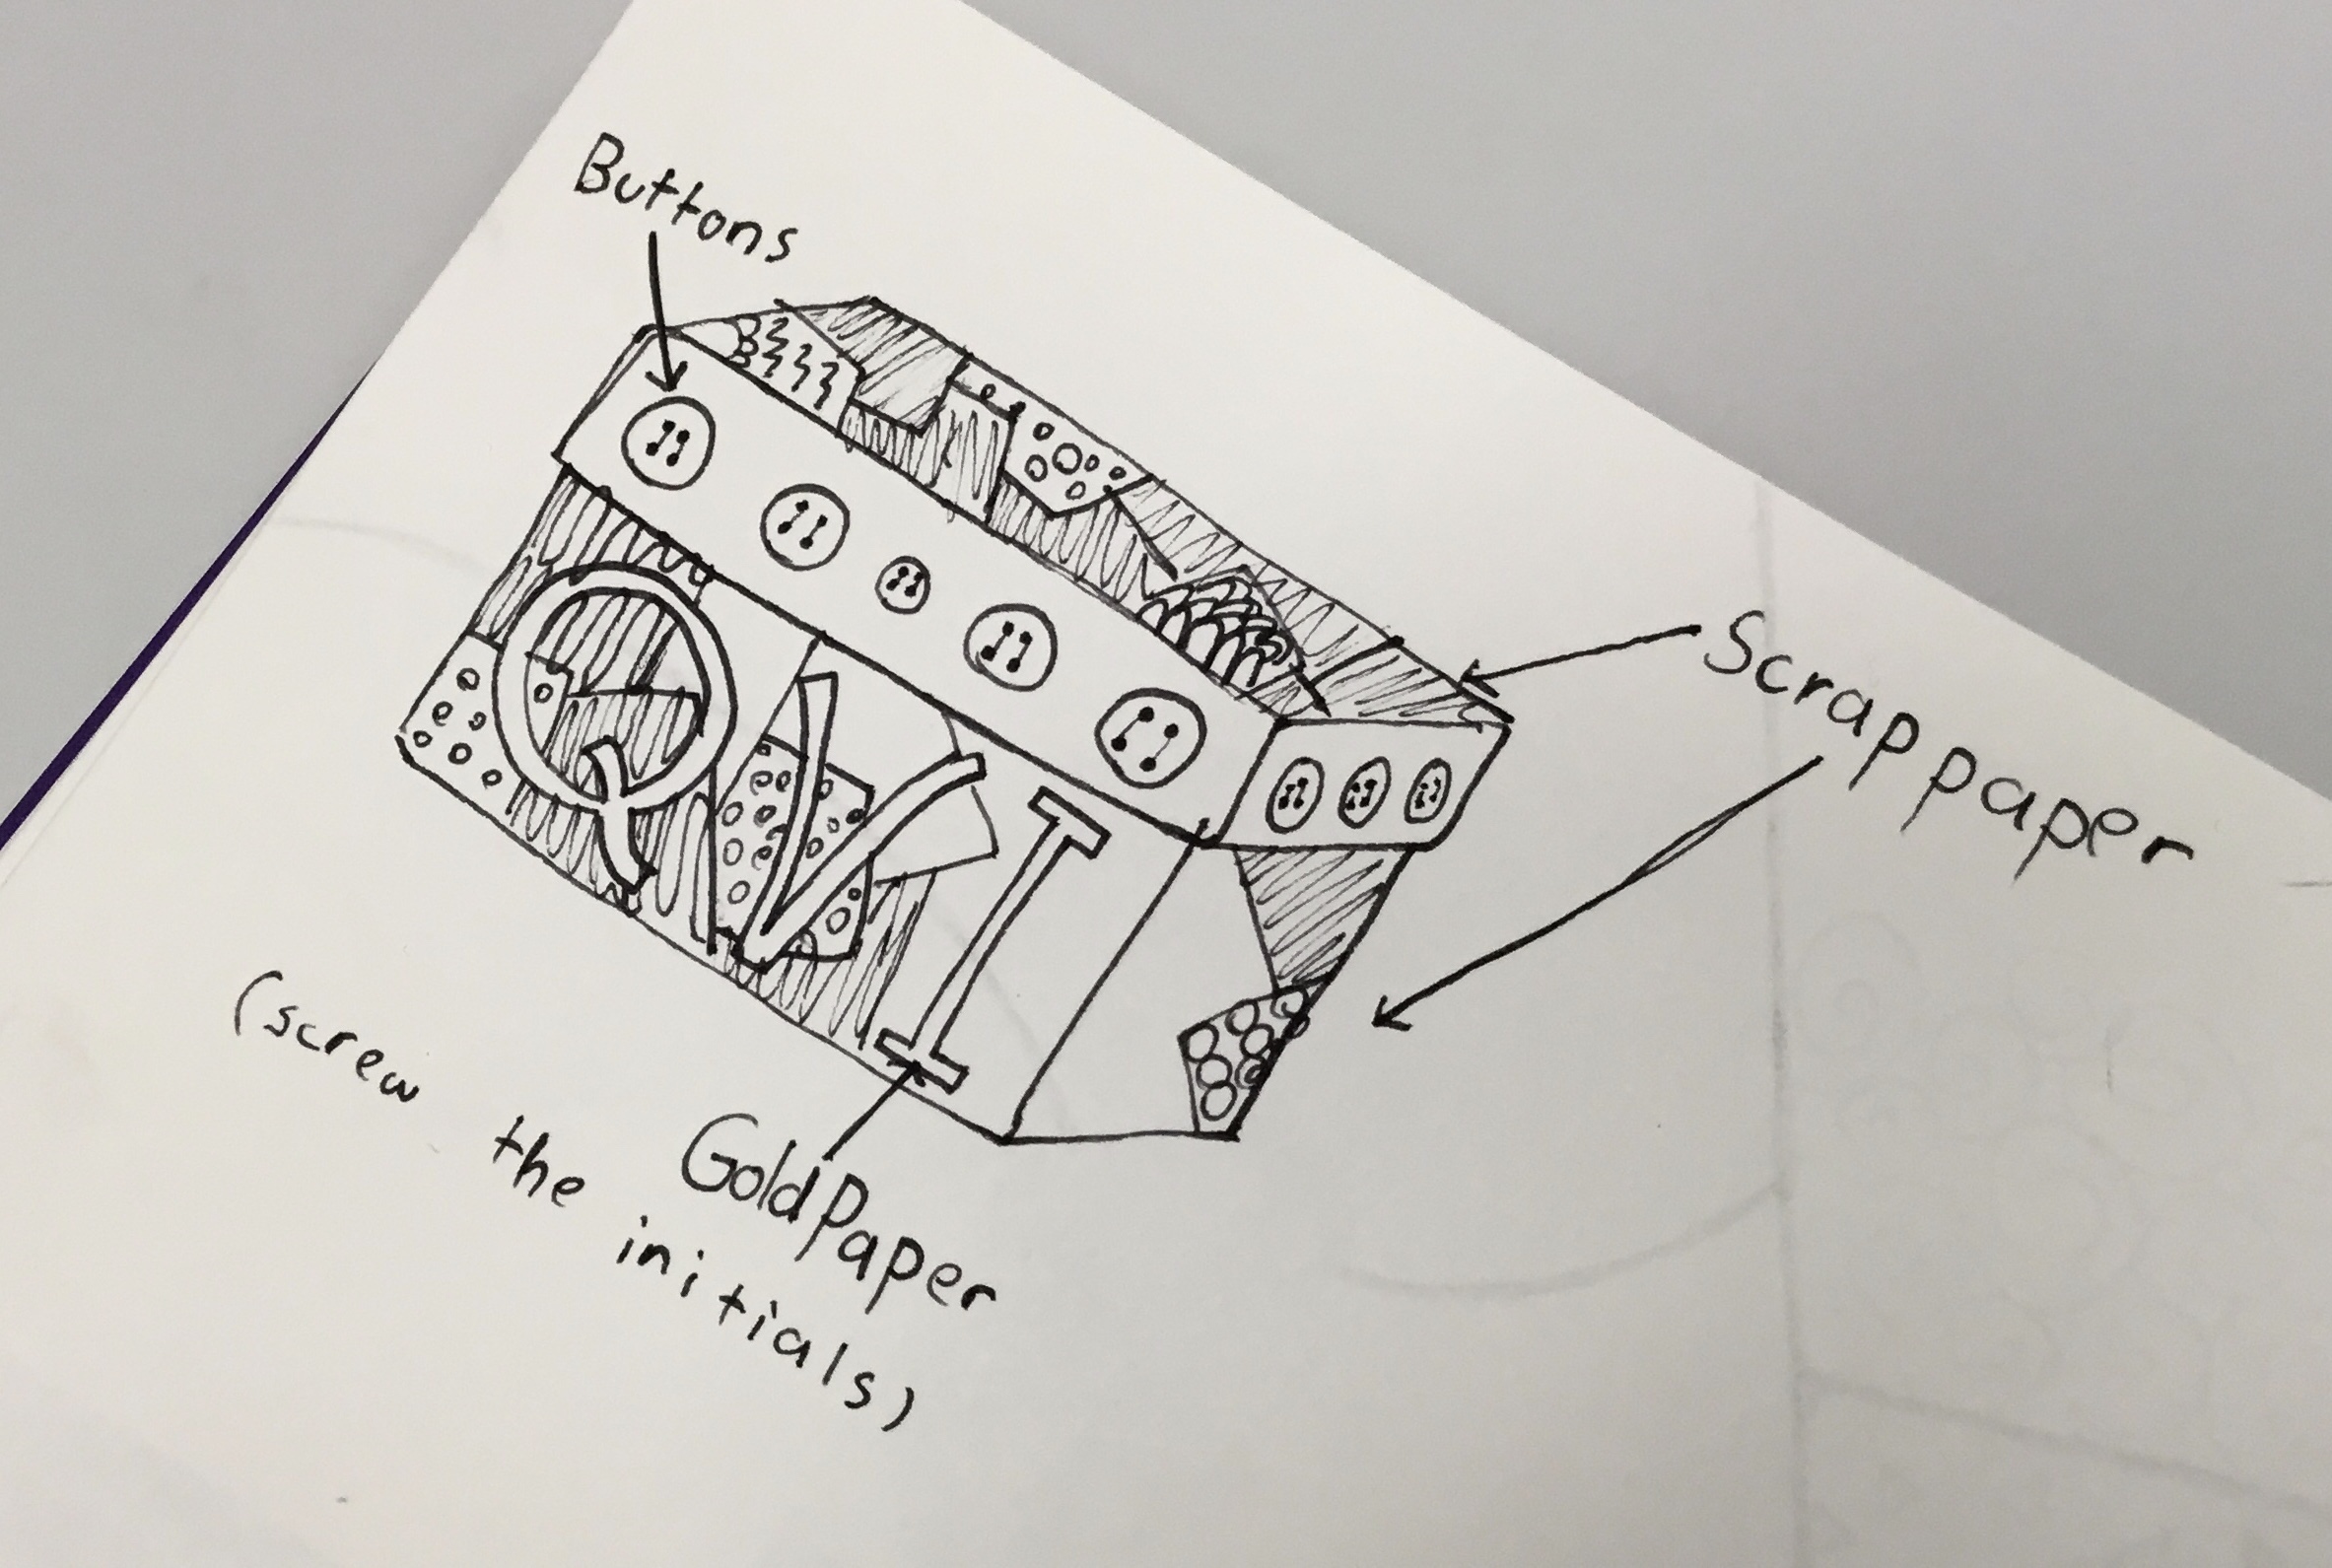 Buttons
Scrap paper
QVI
Gold Paper
(screw the initials)